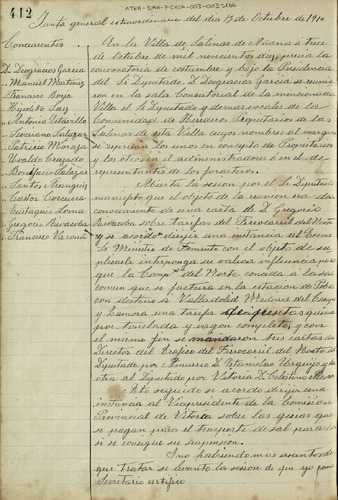 412
ATHA-DAH-FCHOA-003-003-166
Junta general extraordinaria del dia 13 de Octubre de 1910
Concurrentes
D. Deogracias Garcia
" Manuel Martinez
" Francisco Boya
" Hipolito Saez
" Antonio Estavillo
" Saveriano Salazar
" Patricio Moraza
" Ubaldo Cruzado
" Bonifacio Salazar
" Santos Aranguiz
" Castor Corcuera
" Eustaquio Loma
" Gregorio Ruvacoba
" Francisco Varona
En la Villa de Salinas de Añana á trece
de Octubre de mil novecientos diez, previa la
convocatoria de costumbre y bajo la Presidencia
del Sr Diputado D. Deogracias Garcia se reunie
ron en la sala Consistorial de la mencionada
Villa el Sr Diputado y demas vocales de la
Comunidad de Herederos Propietarios de las
Salinas de esta Villa cuyos nombres al margen
se expresan los unos en concepto de Propietarios
y los otros el de administradores ó en el de re-
presentantes de los forasteros.
Abierta la sesion por el Sr Diputado
manifestó que el objeto de la reunion era dar
conocimiento de una carta de D. Gregorio
Ruvacoba sobre tarifas del Ferrocarril del Norte
y se acordó dirijir una instancia al Excmo
Sr Ministro de Fomento con el objeto de su-
plicarle interponga su valiosa influencia para
que la Compª del Norte conceda á la sal
comun que se factura en la estacion de Pobes
con destino á Valladolid Medina del Campo
y Zamora una tarifa
por tonelada y vagon completo, y con
el mismo fin se mandaron tres cartas al
Director del Trafico del Ferrocarril del Norte al
Diputado por Amurrio D. Estanislao Urquijo y la
otra al Diputado por Vitoria D. Celestino
Acto seguido se acordó dirijir una
instancia al Vicepresidente de la Comision
Provincial de Vitoria sobre las
se pagan para el transporte de sal para ver
si se consigue su supresion.
Y no habiendo mas asuntos de
que tratar se levantó la sesion de que yo como
Secretario certifico